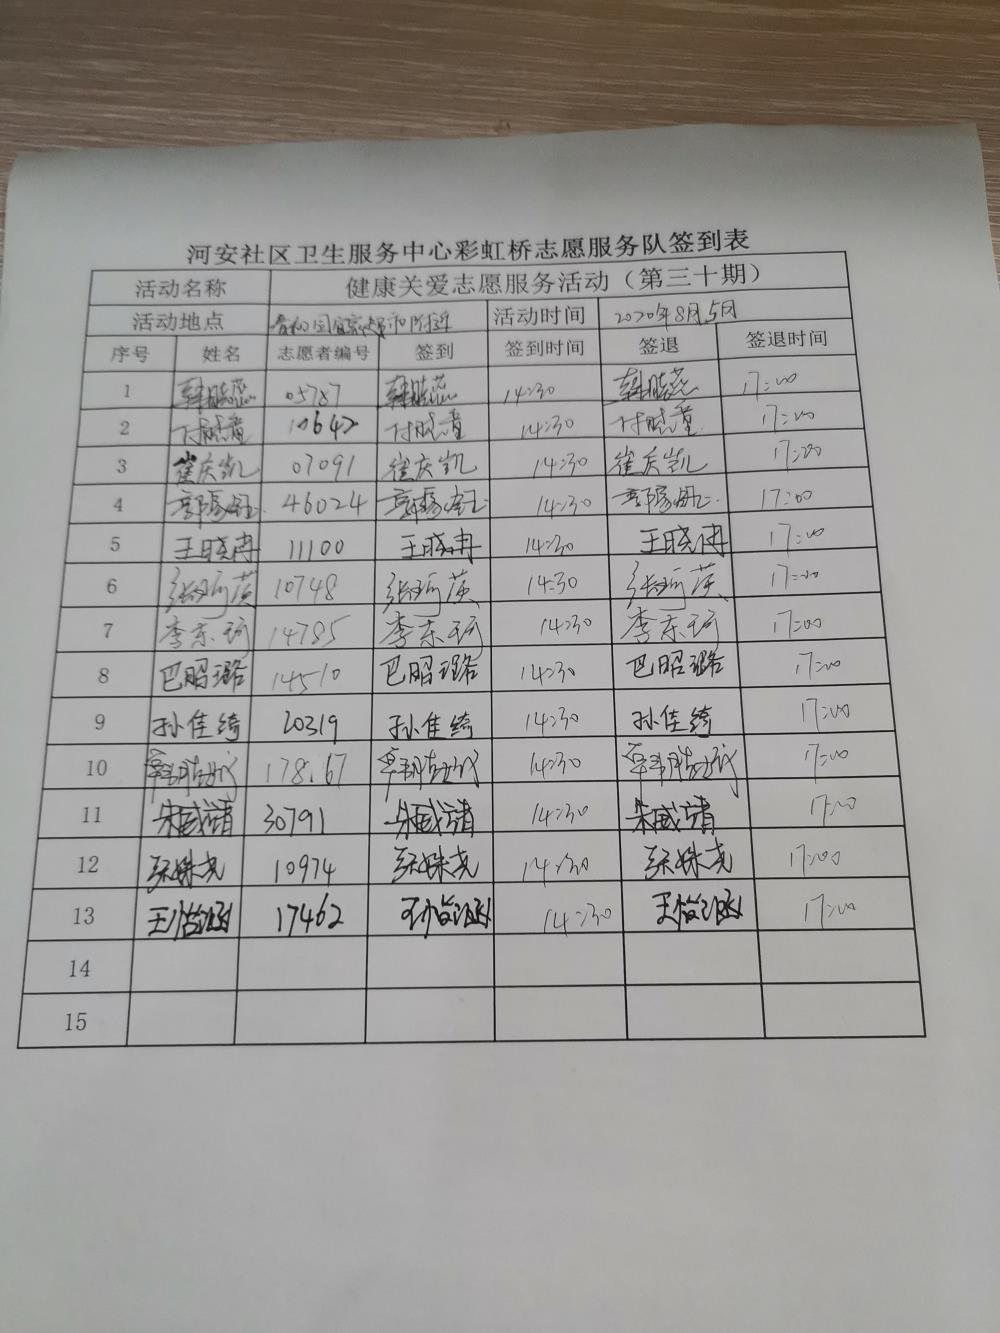 河安社区卫生服务中心彩虹桥志愿服务队签到表
活动名称 健康关爱志愿服务活动（第三十期）
活动地点 活动时间 2020年8月5日
序号 姓名 志愿者编号 签到 签到时间 签退 签退时间
1 韩晓蕊 05787 韩晓蕊 14:30 韩晓蕊 17:00
2 付晓童 10642 付晓童 14:30 付晓童 17:00
3 崔庆凯 07091 崔庆凯 14:30 崔庆凯 17:00
4 46024 14:30 17:00
5 王晓冉 11100 王晓冉 14:30 王晓冉 17:00
6 10748 14:30 17:00
7 李东珂 14785 李东珂 14:30 李东珂 17:00
8 巴昭璐 14510 巴昭璐 14:30 巴昭璐 17:00
9 孙佳绮 20319 孙佳绮 14:30 孙佳绮 17:00
10 178.67 14:30 17:00
11 朱威靖 30791 朱威靖 14:30 朱威靖 17:00
12 张姝尧 10974 张姝尧 14:30 张姝尧 17:00
13 王怡涵 17462 王怡涵 14:30 王怡涵 17:00
14
15